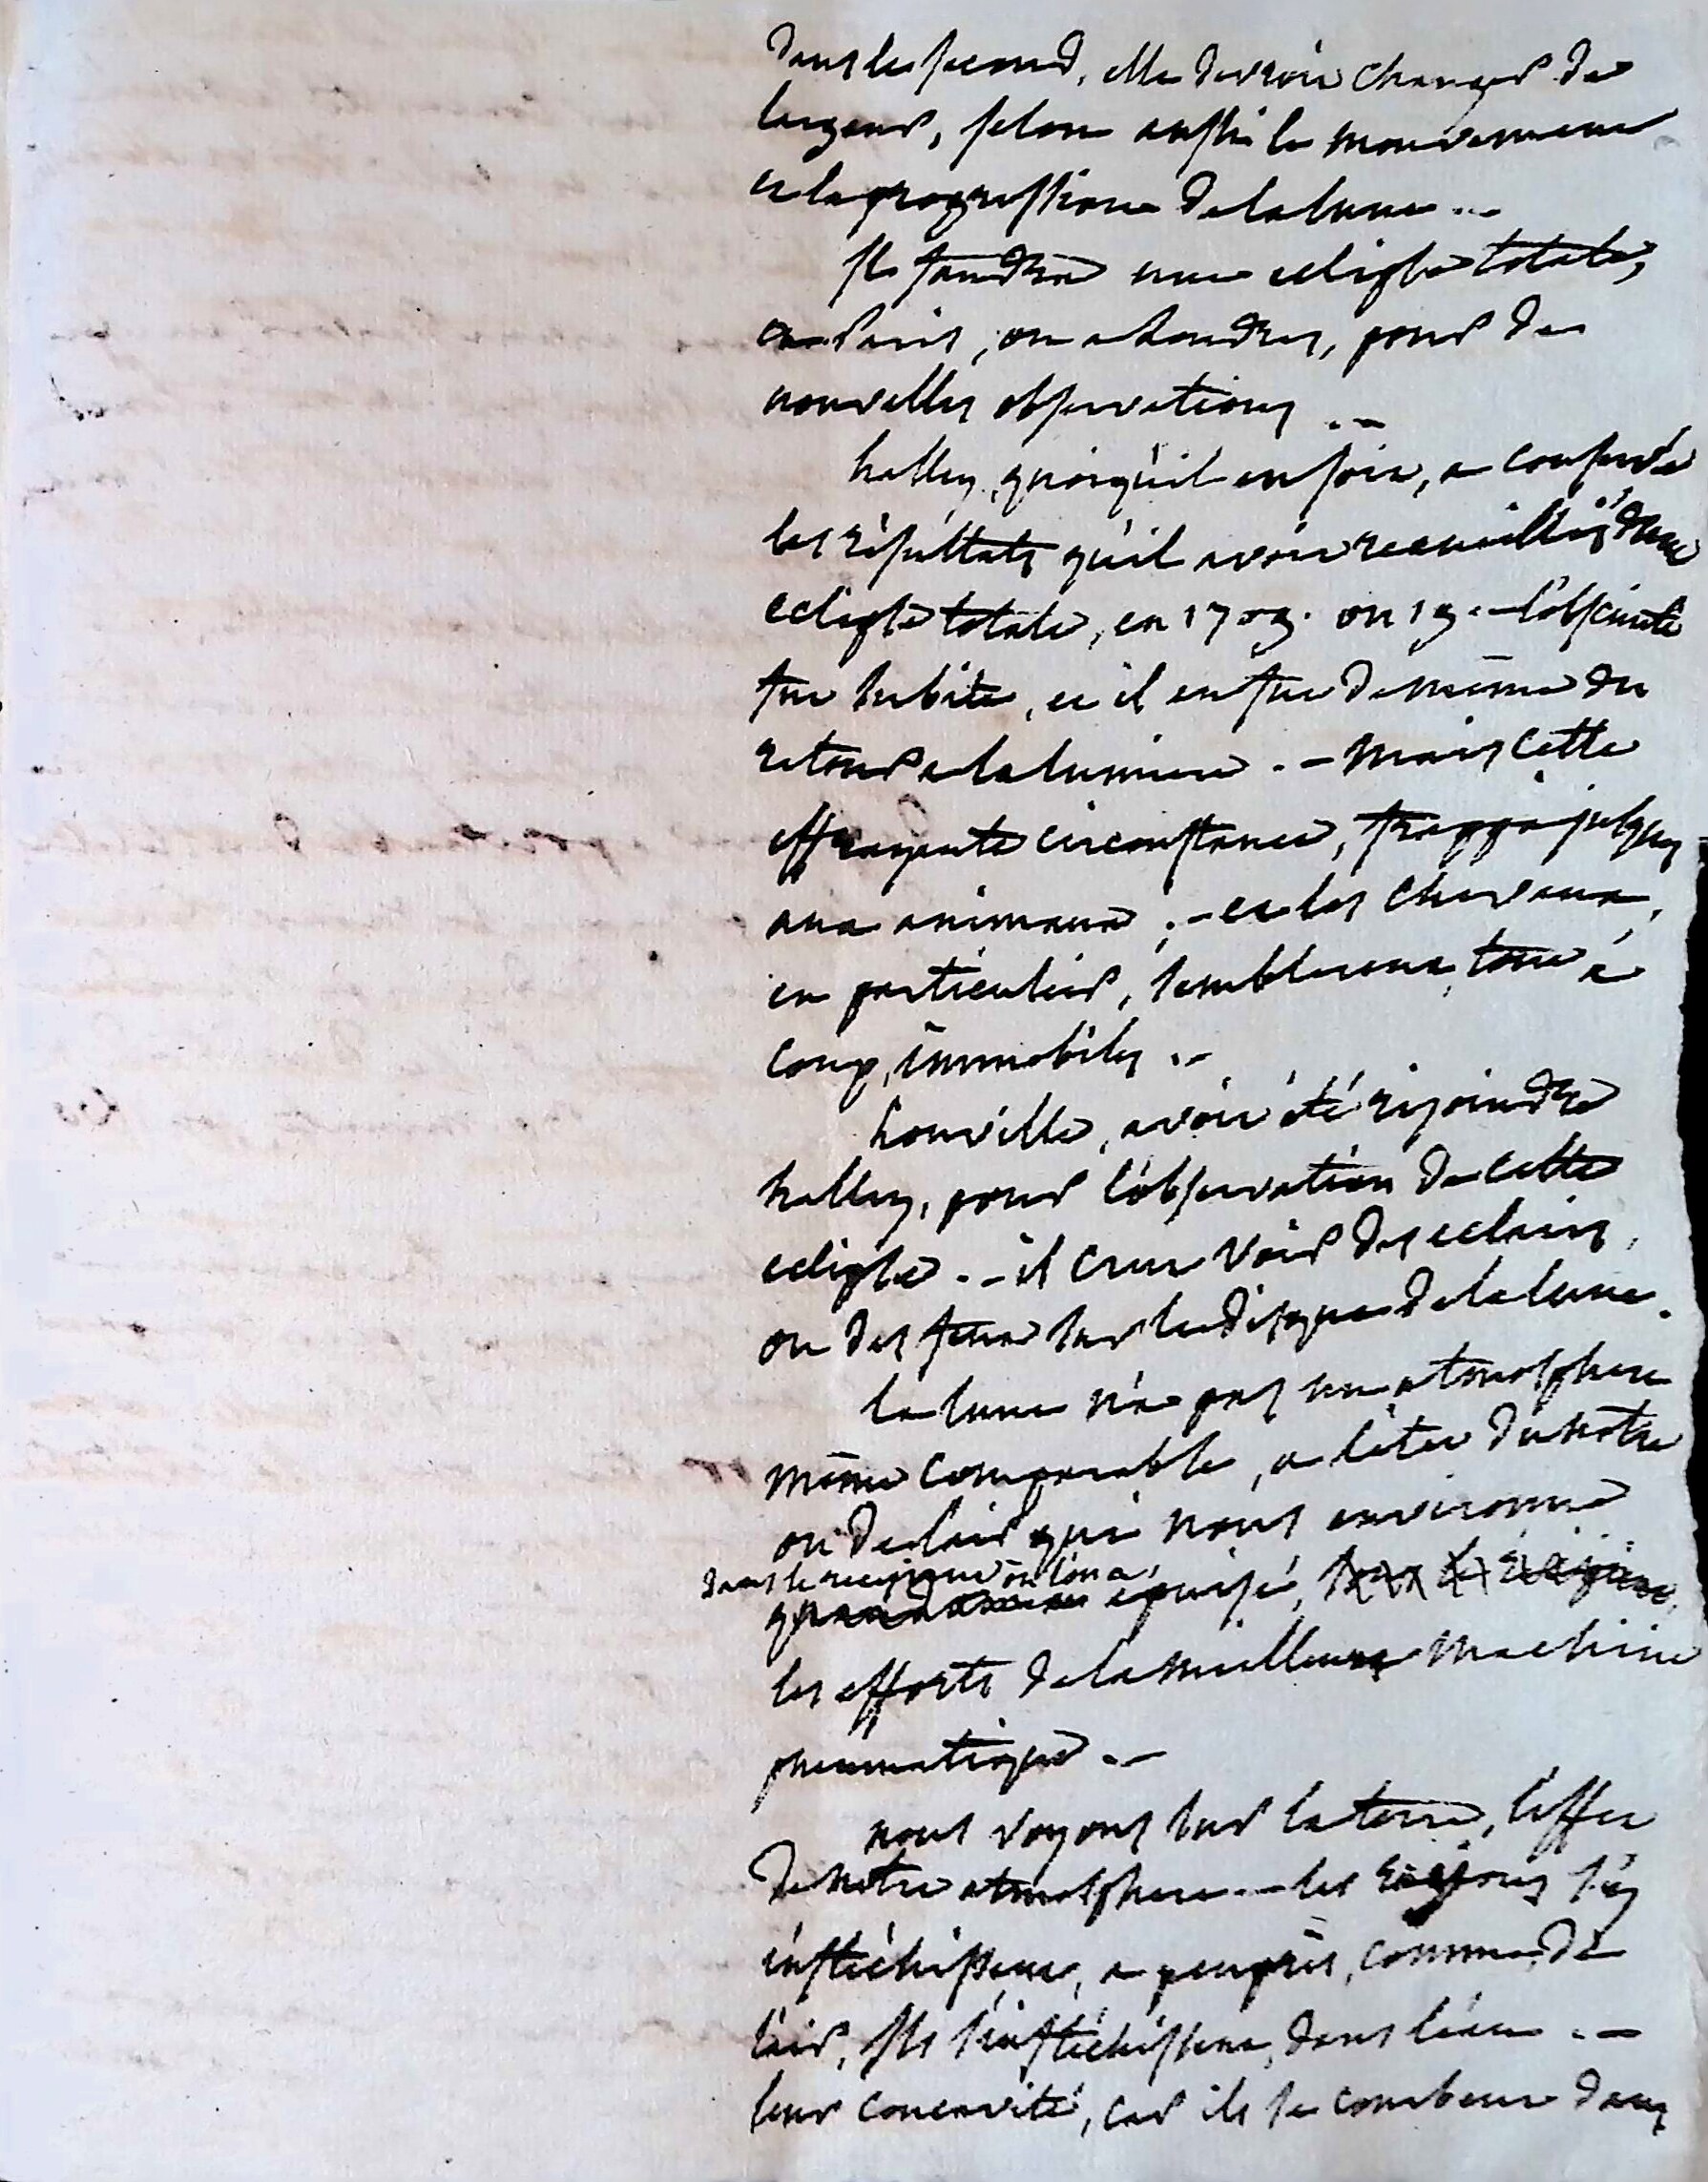 dans le second, elle devroit changer de
largeur, selon aussi le mouvement
et la progression de la lune..
Il faudra une eclipse totale,
a Paris, ou a Londres, pour de
nouvelles observations ..
halley, quoiqu'il en soit, a conservé
les résultats qu'il avoit recueillis d'une
eclipse totale, en 1703. ou 15. – l'obscurité
fut subite, et il en fut de même du
retour a la lumiere .– mais cette
effrayante circonstance, frappa jusques
aux animaux ;– et les chevaux,
en particulier, semblerent, tout à
coup, immobiles ..
Louville, avoit été rejoindre
halley, pour l'observation de cette
eclipse .– il crut voir des eclairs,
ou des feux sur le disque de la lune.
la lune n'a pas une atmosphere
même comparable, a l'éter du notre
ou de l'air qui nous environne
dans le recipient où l'on a,
epuisé,
les efforts de la meilleure machine
pneumatique .–
nous voyons sur la terre, l'effet
de notre atmosphere .– les rayons s'y
infléchissent, a peuprès, comme, de
l'air, ils s'infléchissent, dans l'eau .–
leur concavité, car ils se courbent dans